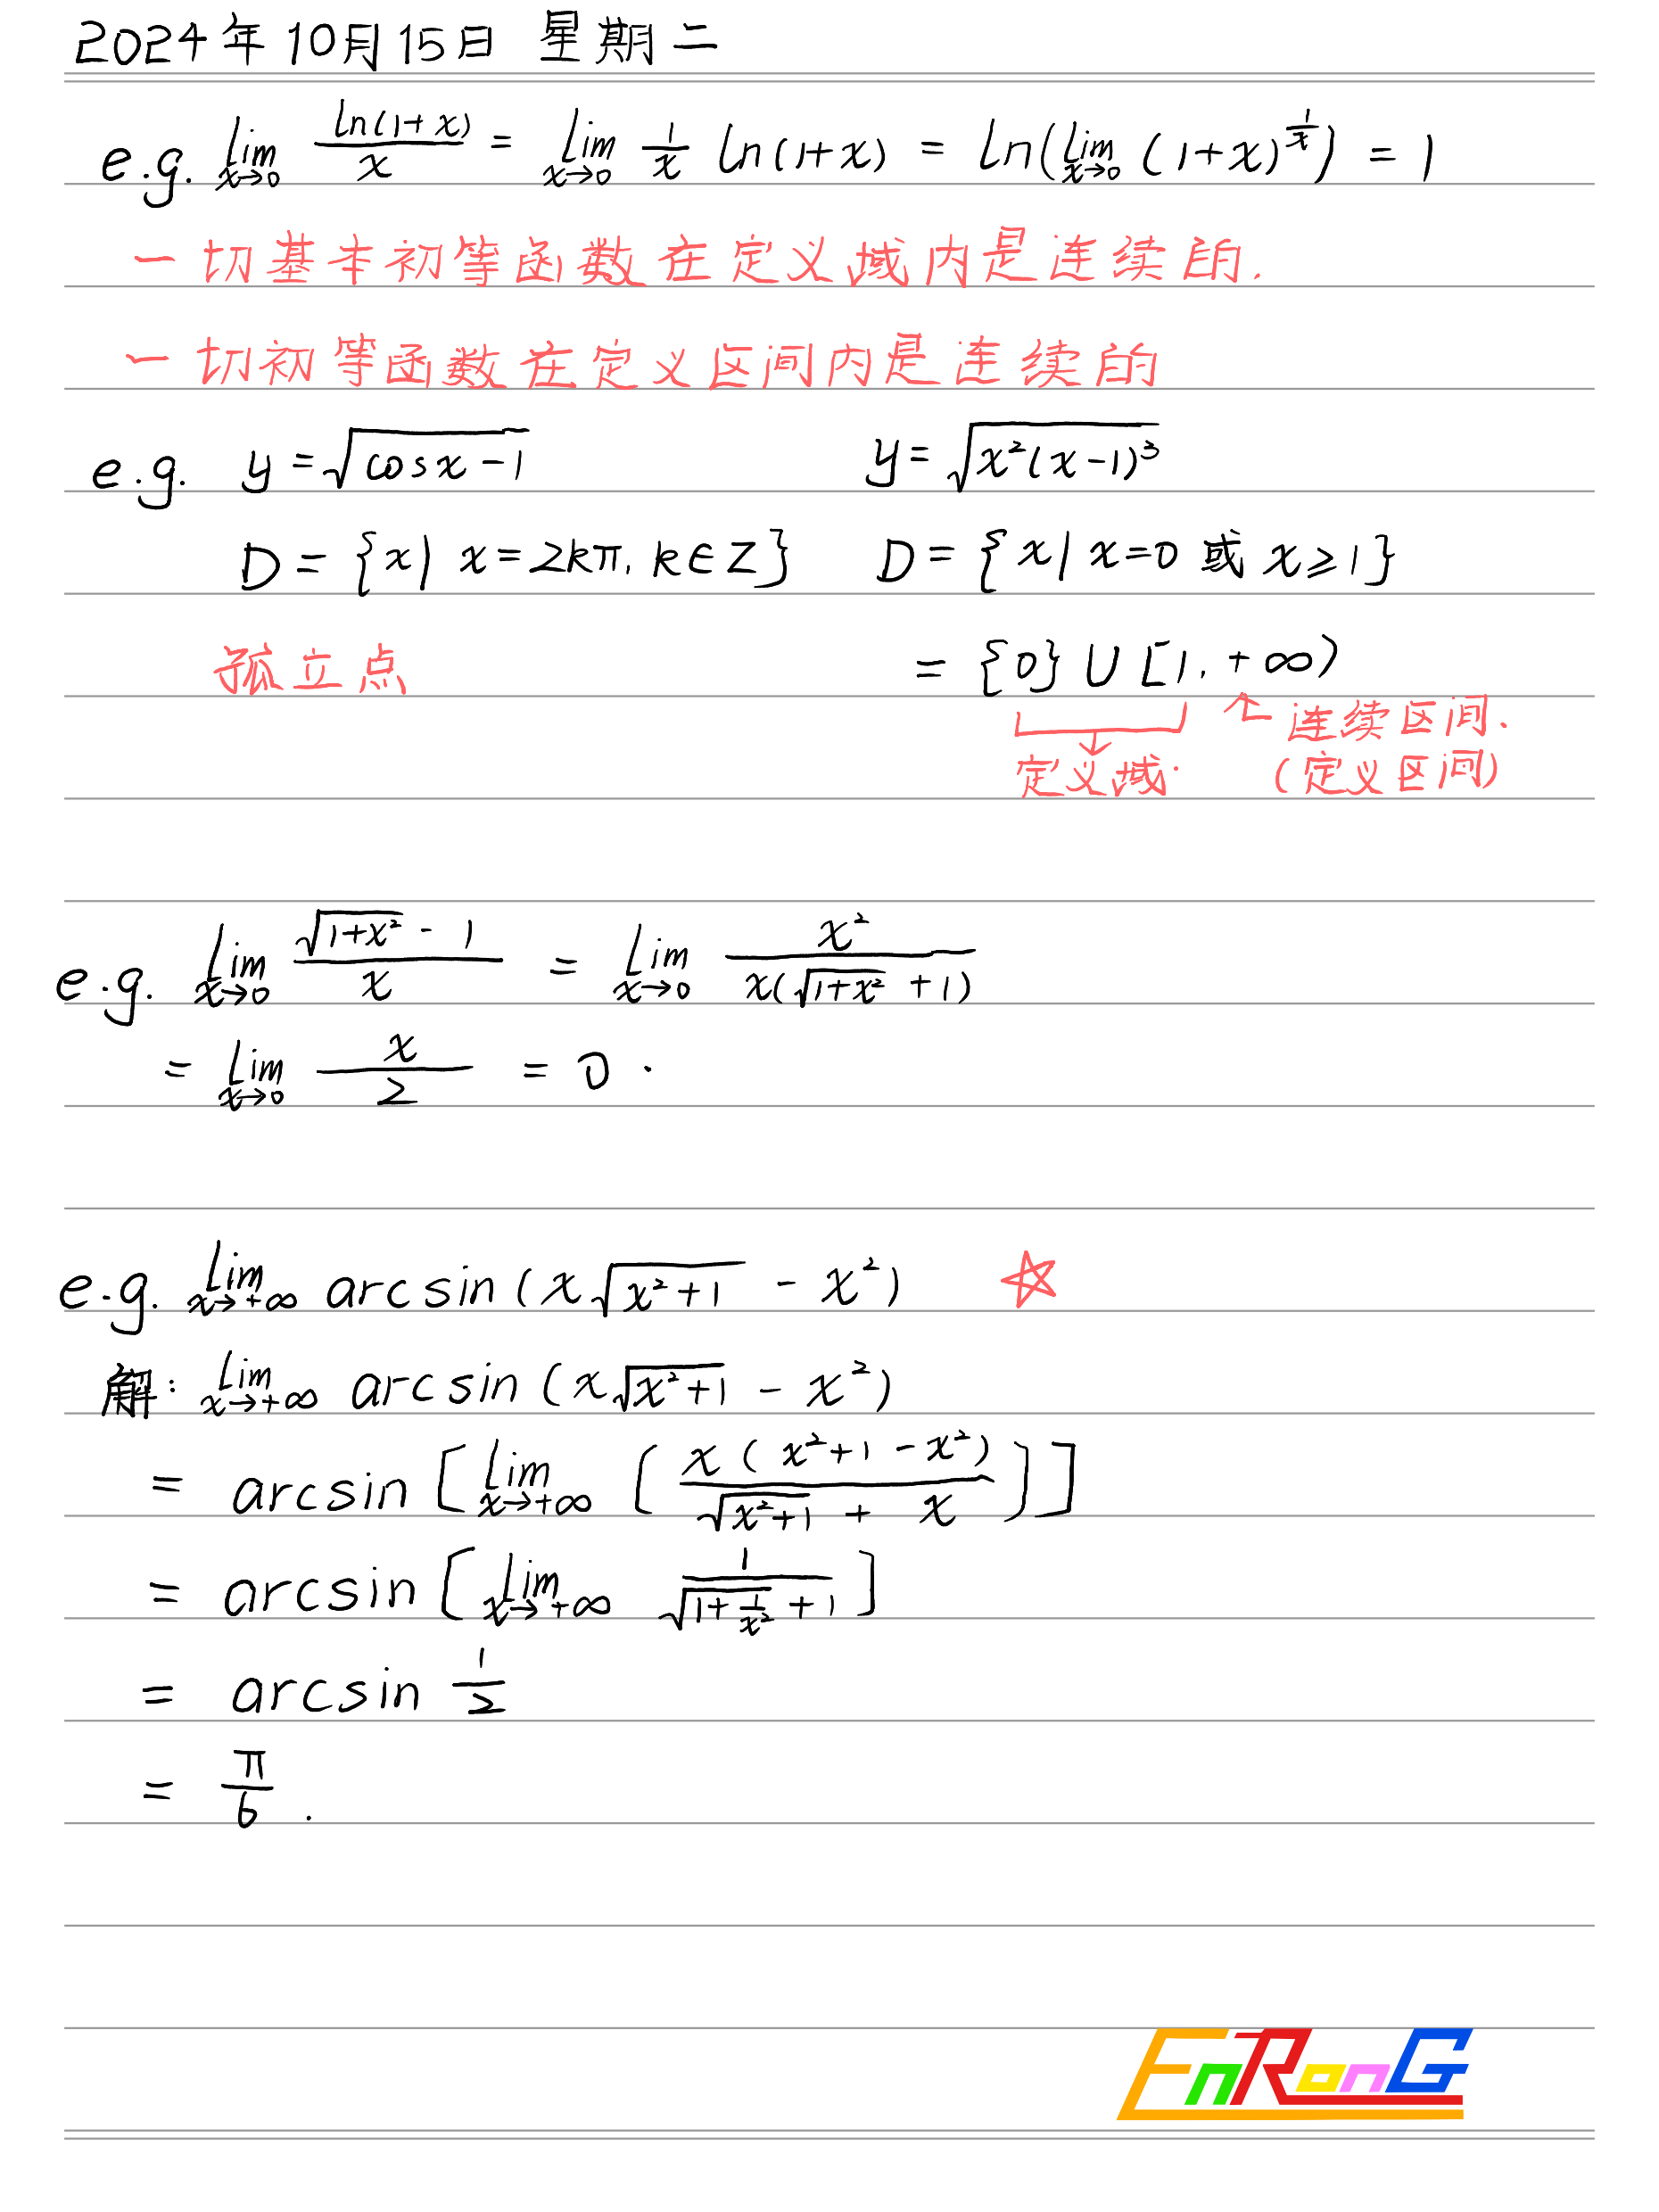 2024年10月15日 星期二
e.g. lim x→0 ln(1+x)/x = lim x→0 1/x ln(1+x) = ln(lim x→0 (1+x)^(1/x)) = 1
一切基本初等函数在定义域内是连续的.
一切初等函数在定义区间内是连续的
e.g. y = √(cosx-1) y = √(x²(x-1)³)
D = {x| x=2kπ, k∈Z} D = {x| x=0 或 x≥1}
孤立点 = {0} ∪ [1, +∞)
↑ 连续区间.
定义域. (定义区间)
e.g. lim x→0 (√(1+x²) - 1)/x = lim x→0 x²/(x(√(1+x²) + 1))
= lim x→0 x/2 = 0.
e.g. lim x→+∞ arcsin(x√(x²+1) - x²) ☆
解: lim x→+∞ arcsin(x√(x²+1) - x²)
= arcsin[lim x→+∞ (x(x²+1-x²)/(√(x²+1) + x))]
= arcsin[lim x→+∞ 1/(√(1+1/x²) + 1)]
= arcsin 1/2
= π/6.
EnRonG